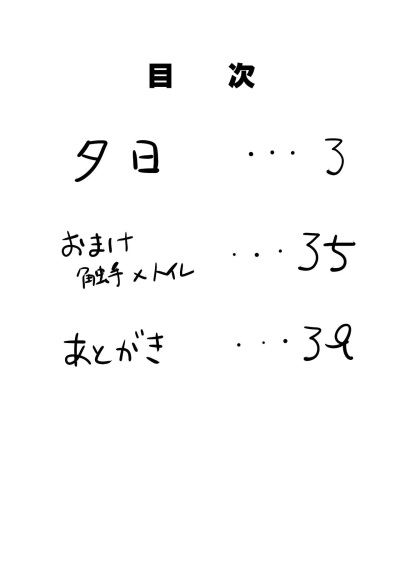 目 次
夕日 ･･･ 3
おまけ ･･･ 35
触手×トイレ
あとがき ･･･ 39